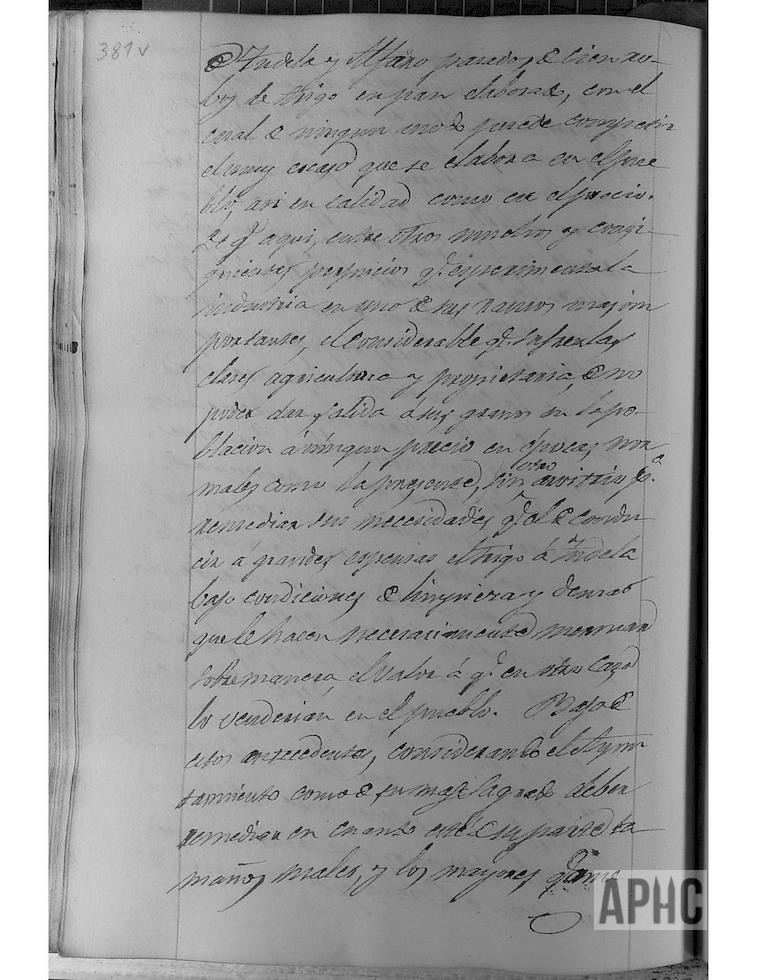 381v
de Tudela y Alfaro pasados de cien ro-
bos de trigo en pan elaborado, con el
cual de ningun modo puede competir
el muy escaso que se elabora en el pue
blo, asi en calidad como en el precio.
De qe aqui, entre otros muchos y consi
guientes perjuicios qe experimenta la
industria en uno de sus ramos mas im
portantes, el considerable qe sufren las
clases agricultora y propietaria, de no
poder dar salida á sus granos en la po-
blacion á ningun precio en épocas nor
males como la presente, sin otro arvitrio pa
remediar sus necesidades qe el de condu
cir á grandes expensas el trigo á Tudela
bajo condiciones de limpieza y demas
que le hacen necesariamente mermar
sobre manera el valor á qe en otro caso
lo venderian en el pueblo. Bajo de
estos antecedentes, considerando el Ayun
tamiento como de su mas sagrado deber
remediar en cuanto esté de su parte ta
maños males, y los mayores qe ame
APHC